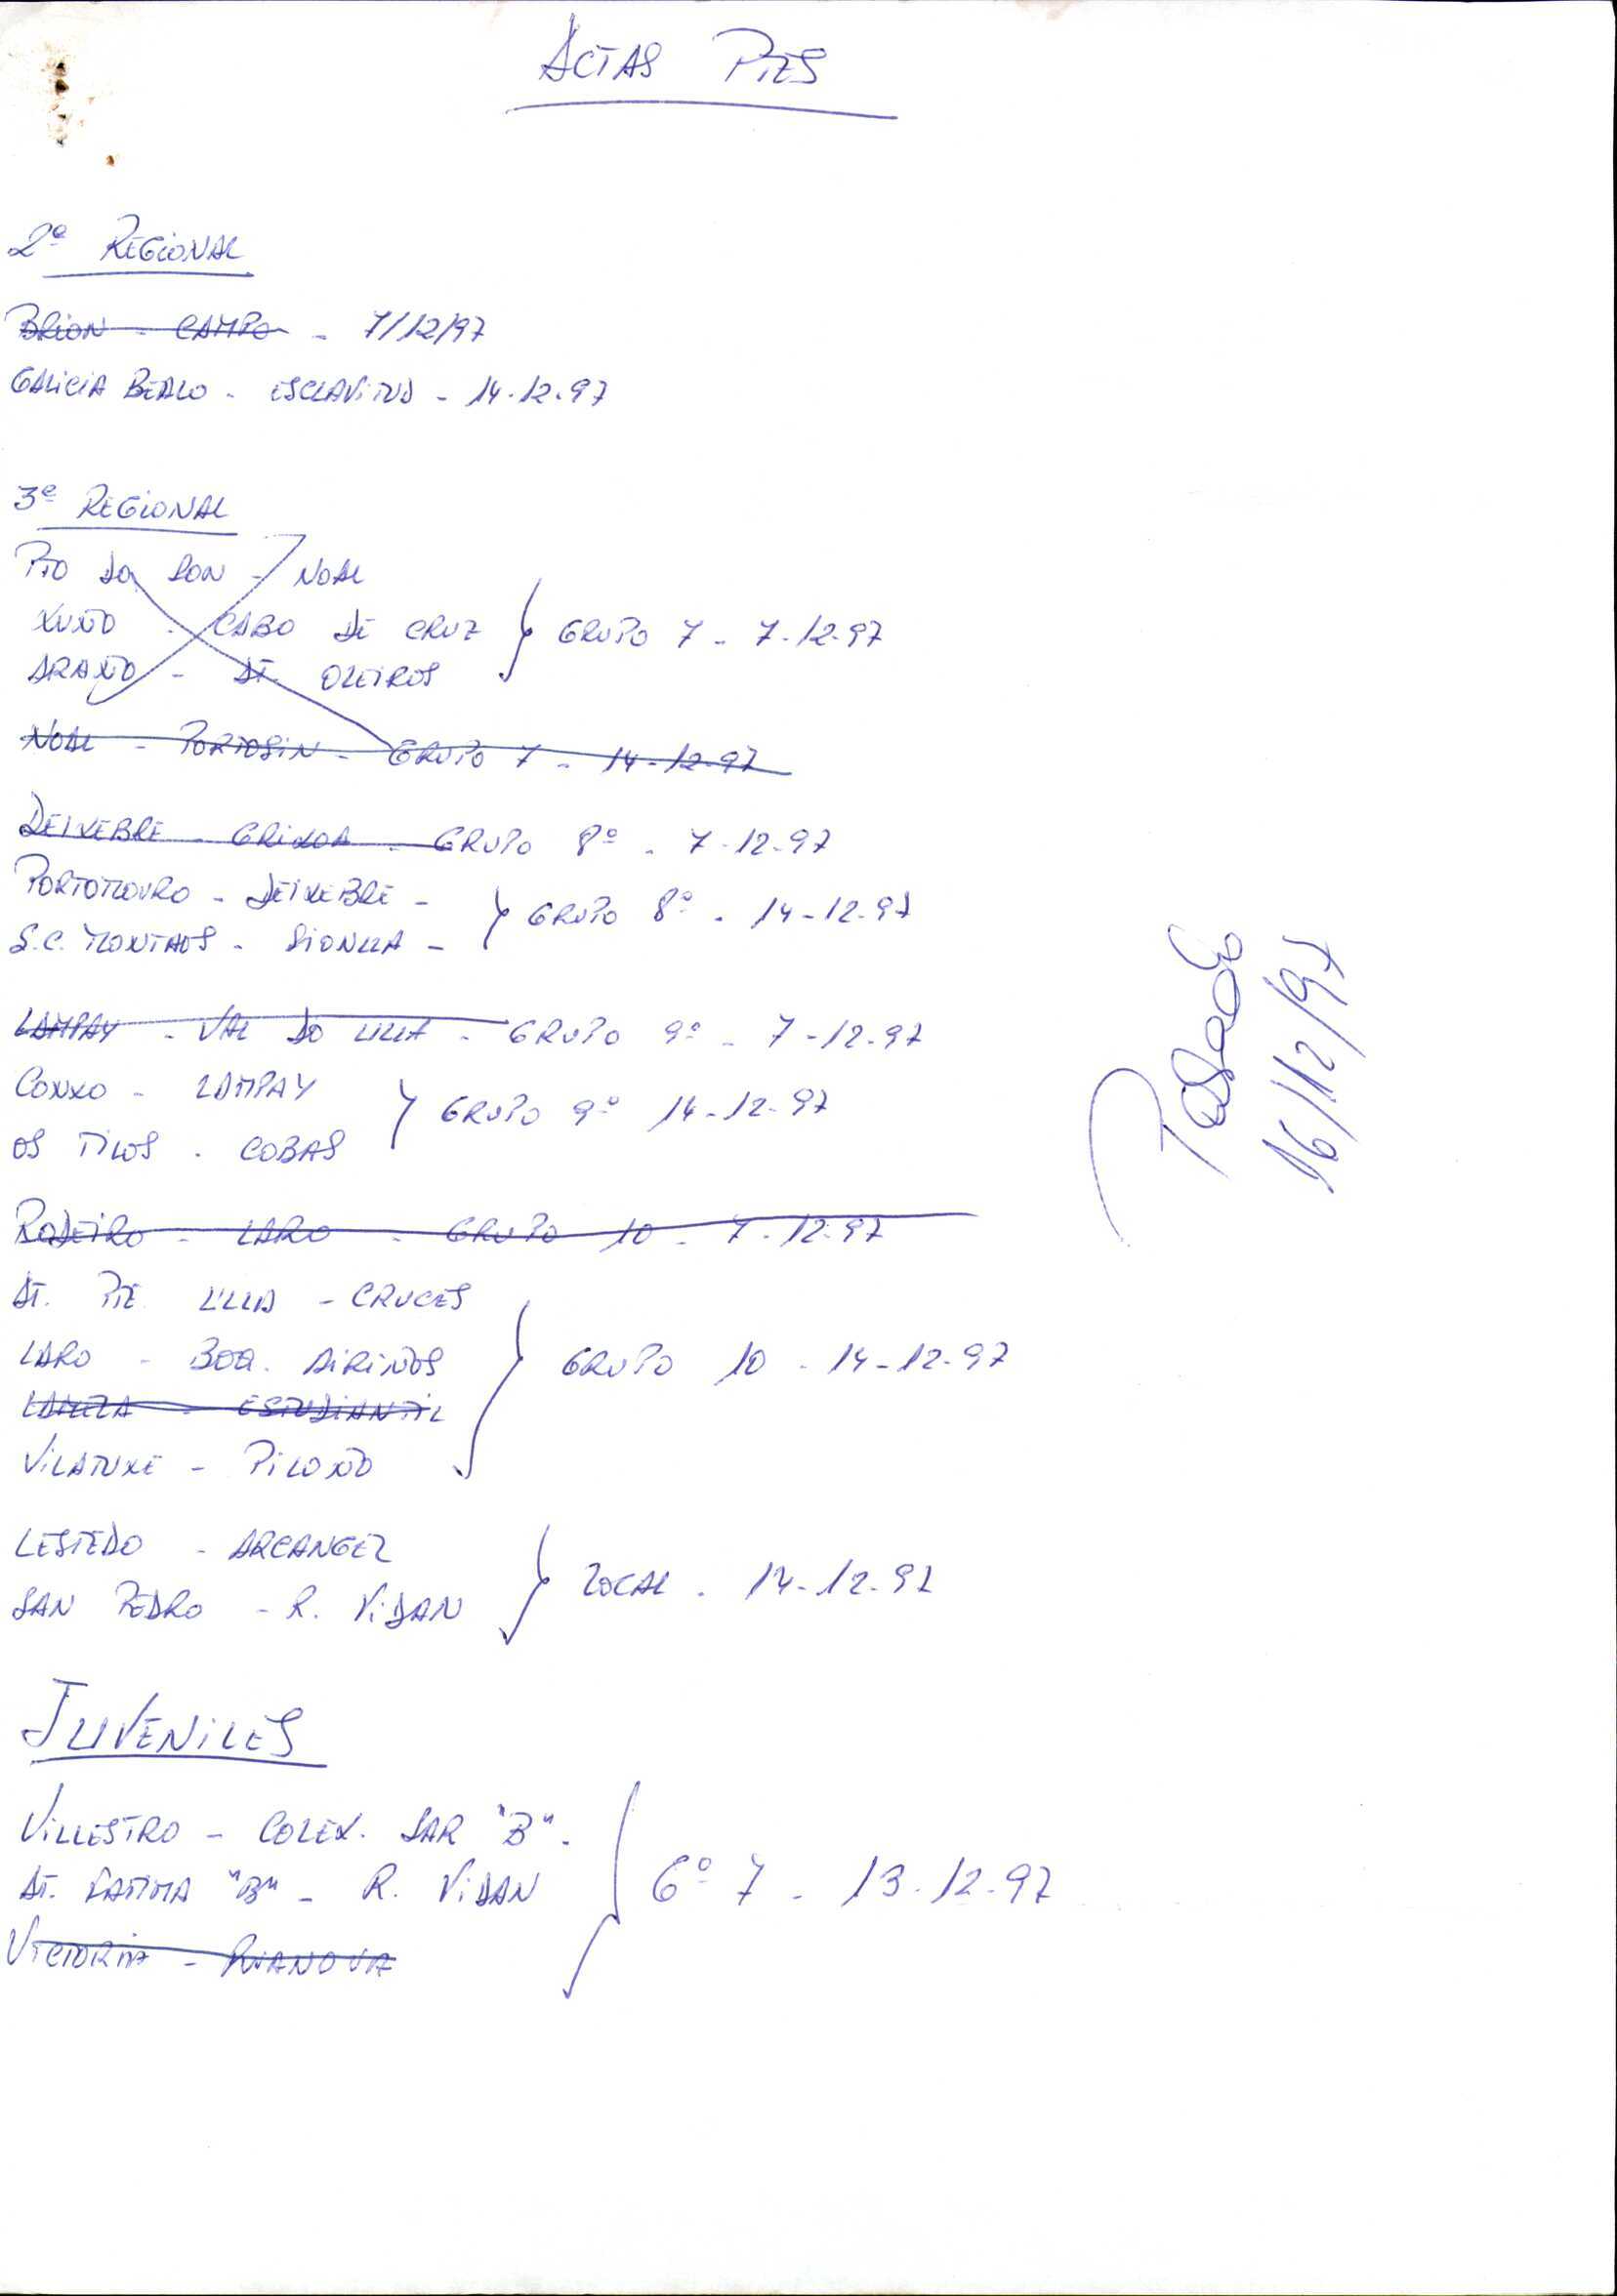 ACTAS PTES
2ª REGIONAL
BRION - CAMPO - 7/12/97
GALICIA BEALO - ESCLAVITUD - 14-12-97
3ª REGIONAL
PTO DO SON - NOAL
XUÑO - CABO DE CRUZ
ARAÑO - AT. OLEIROS
GRUPO 7 - 7-12-97
NOAL - PORTOSIN - GRUPO 7 - 14-12-97
DEIXEBRE - GRIXOA - GRUPO 8º - 7-12-97
PORTOMOURO - DEIXEBRE -
S.C. MONTAOS - SIONLLA -
GRUPO 8º - 14-12-97
LAMPAY - VAL DO ULLA - GRUPO 9º - 7-12-97
CONXO - LAMPAY
OS TILOS - COBAS
GRUPO 9º 14-12-97
RODEIRO - LARO - GRUPO 10 - 7-12-97
AT. PTE ULLA - CRUCES
LARO - BOQ. AIRIÑOS
ESTUDIANTIL
VILATUXE - PILOÑO
GRUPO 10 - 14-12-97
LESTEDO - ARCANGEL
SAN PEDRO - R. VIDAN
LOCAL - 14-12-97
JUVENILES
VILLESTRO - COLEX. SAR "B" -
AT. FATIMA "B" - R. VIDAN
VICTORIA - RUANOVA
Gº 7 - 13-12-97
Pasado
16/12/97